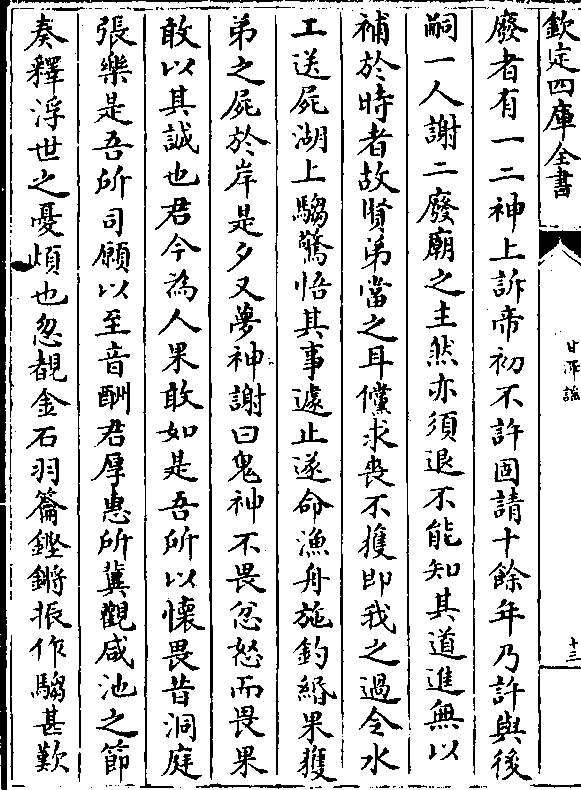 欽定四庫全書
甘澤謠
十三
廢者有一二神上訴帝初不許固請十餘年乃許與後
嗣一人謝二廢廟之主然亦須退不能知其道進無以
補於時者故賢弟當之耳儻求喪不獲即我之過令水
工送屍湖上騶驚悟其事遽止遂命漁舟施釣緡果獲
弟之屍於岸是夕又夢神謝曰鬼神不畏忿怒而畏果
敢以其誠也君今為人果敢如是吾所以懷畏昔洞庭
張樂是吾所司願以至音酬君厚惠所冀觀咸池之節
奏釋浮世之憂煩也忽覩金石羽籥鏗鏘振作騶甚歎